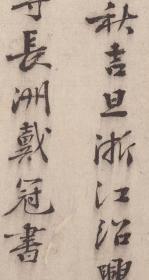 秋吉旦浙江紹興
長洲戴冠書